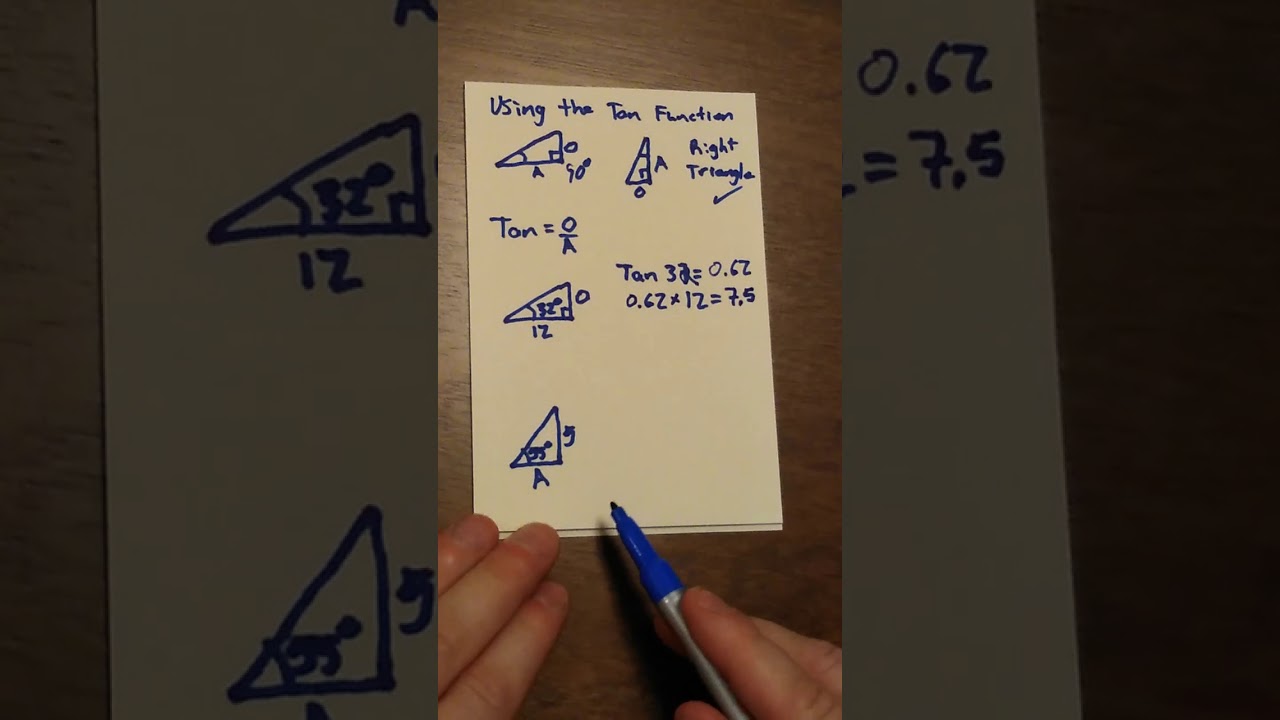 Using the Tan Function
O
A
90°
A
O
Right
Triangle
Tan = O/A
32°
O
12
Tan 32 = 0.62
0.62 × 12 = 7.5
55°
5
A